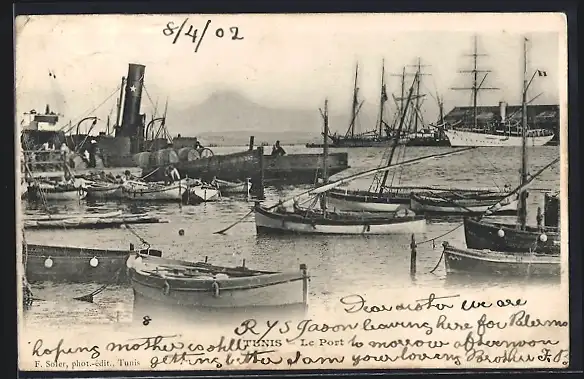 8/4/02
Dear sister we are
R.Y.S Jason leaving here for Palermo
TUNIS - Le Port to morrow afternoon
hoping mother is still getting better I am your loving Brother F.B.
F. Soler, phot.-édit., Tunis